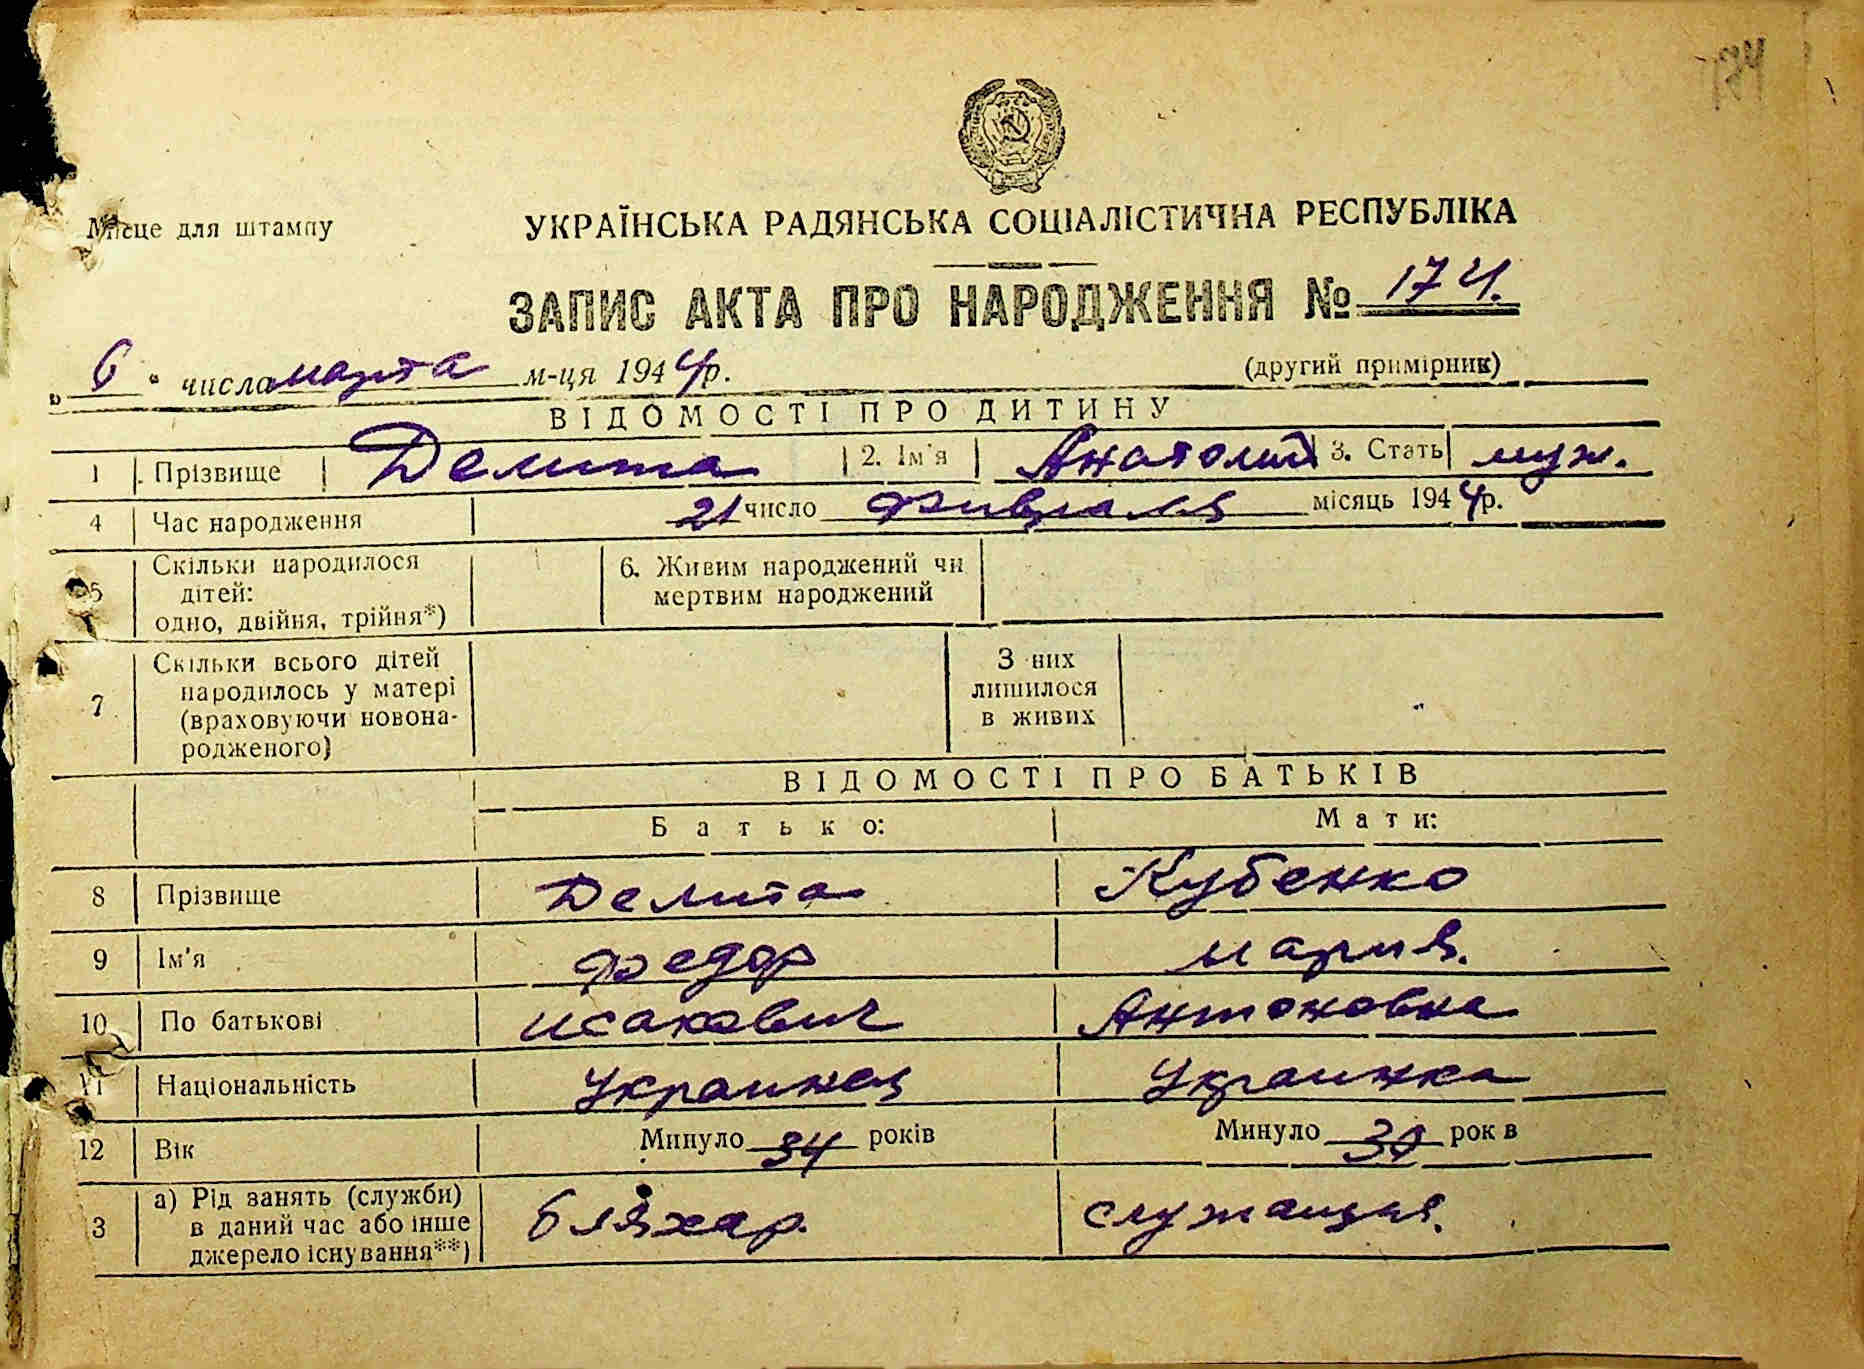 174
Місце для штампу
УКРАЇНСЬКА РАДЯНСЬКА СОЦІАЛІСТИЧНА РЕСПУБЛІКА
ЗАПИС АКТА ПРО НАРОДЖЕННЯ № 174.
„ 6 " числа марта м-ця 1944 р.
(другий примірник)
ВІДОМОСТІ ПРО ДИТИНУ
1 Прізвище Делита 2. Ім'я Анатолий 3. Стать муж.
4 Час народження 21 число Фивраля місяць 1944 р.
5 Скільки народилося дітей: одно, двійня, трійня*) 6. Живим народжений чи мертвим народжений
7 Скільки всього дітей народилось у матері (враховуючи новонародженого) З них лишилося в живих
ВІДОМОСТІ ПРО БАТЬКІВ
Батько: Мати:
8 Прізвище Делита Кубенко
9 Ім'я Федор мария.
10 По батькові исакович Антоновна
11 Національність Украинец Украинка
12 Вік Минуло 34 років Минуло 30 рок в
3 а) Рід занять (служби) в даний час або інше джерело існування**) бляхар. служащая.